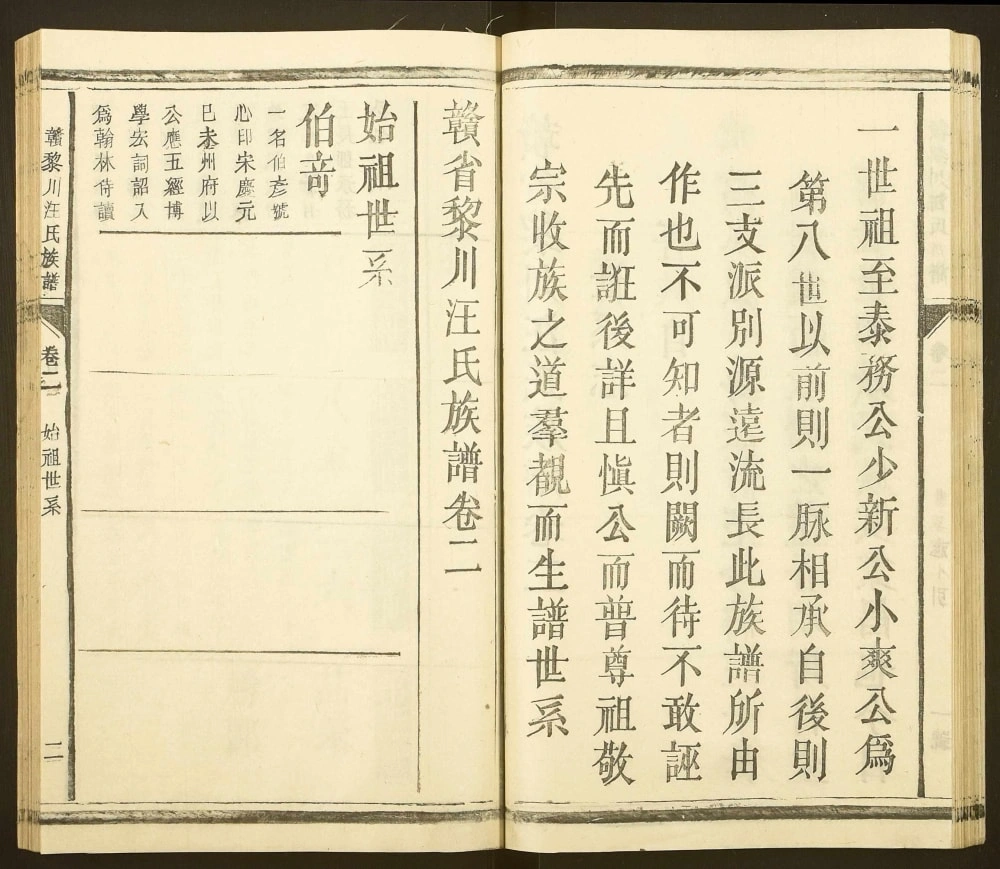 一世祖至泰務公少新公小爽公爲
第八世以前則一脉相承自後則
三支派別源遠流長此族譜所由
作也不可知者則闕而待不敢誣
先而誑後詳且愼公而普尊祖敬
宗收族之道羣覩而生譜世系
贛省黎川汪氏族譜卷二
始祖世系
伯竒
一名伯彥號
心印宋慶元
巳未州府以
公應五經博
學宏詞詔入
爲翰林侍讀
贛黎川汪氏族譜
卷二
始祖世系
二